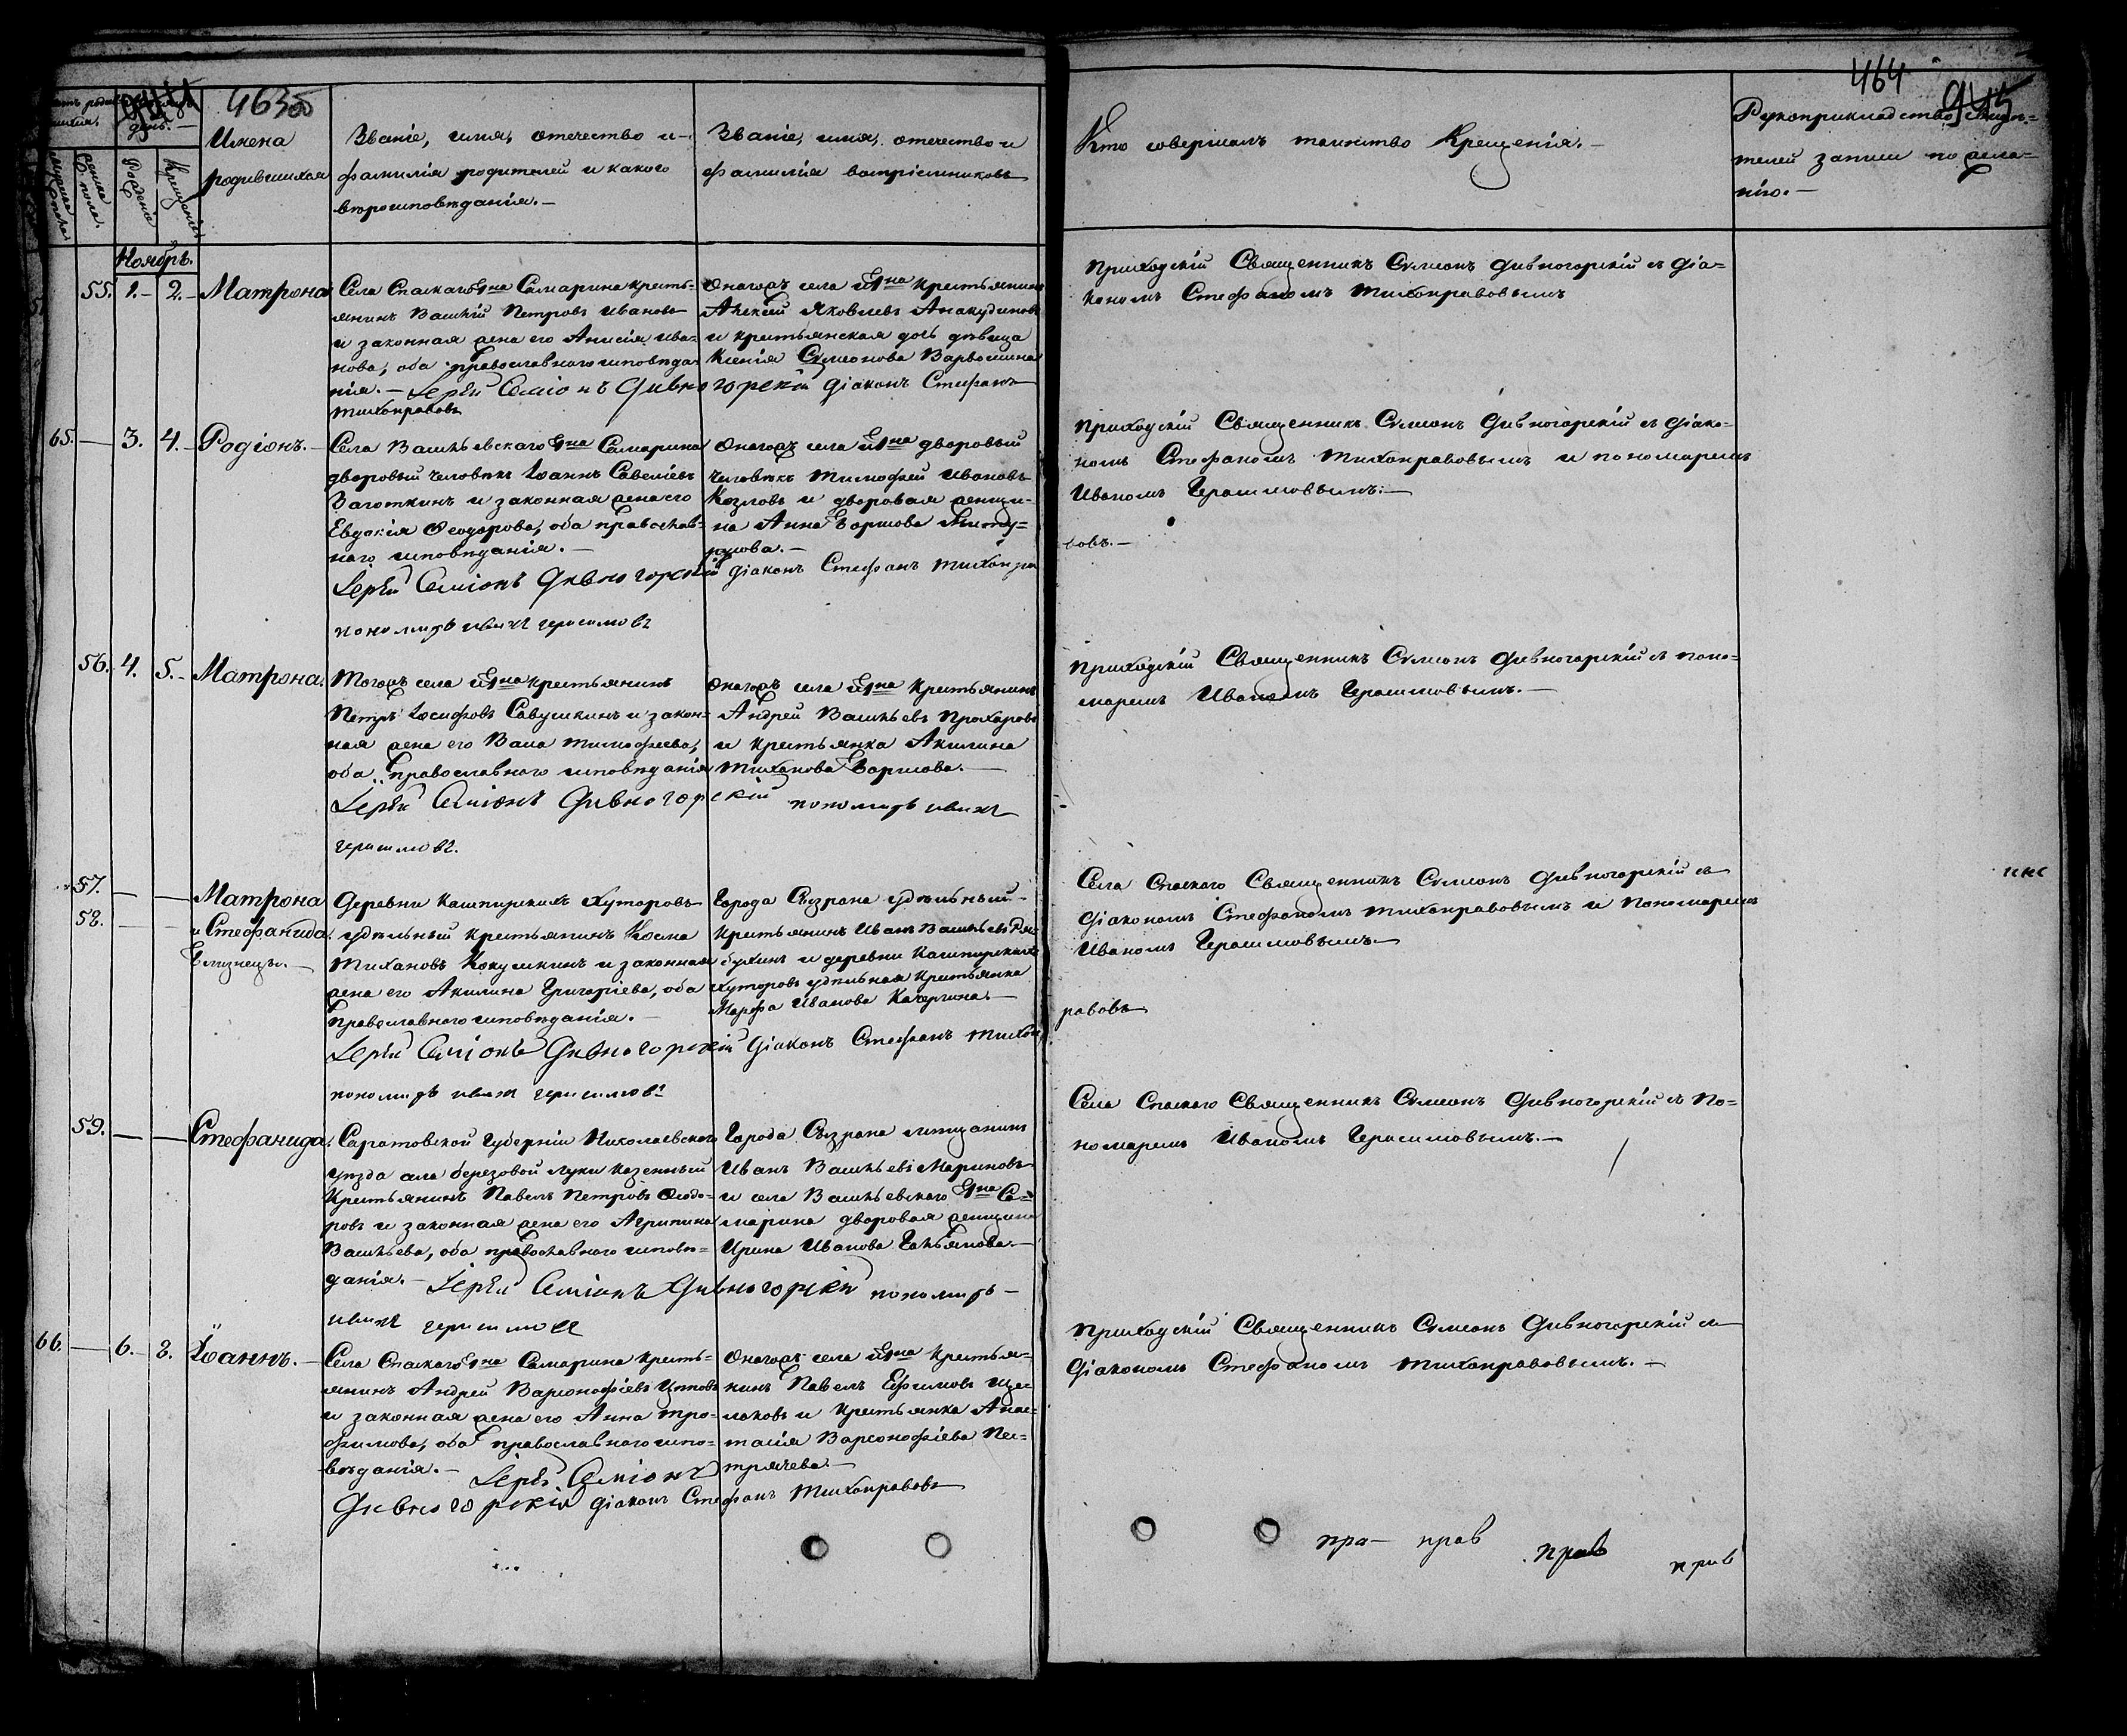 463 об
464
Счетъ родив-
шихся.
день.
Имена
родившихся
Званіе, имя, отечество и
фамилія родителей и какого
вѣроисповѣданія.
Званіе, имя, отечество и
фамилія воспріемниковъ
Кто совершалъ таинство Крещенія.
Рукоприкладство свидѣ-
телей записи по жела-
нію.
мужеска пола.
женска пола.
рожденія
крещенія
Ноябрь.
55. 1. 2. Матрона
Села Спаскаго Г-на Самарина кресть-
янинъ Василій Петровъ Ивановъ
и законная жена его Анисія Ива-
нова, оба православнаго исповѣда-
нія. Іерей Симіонъ Дивногорскій діаконъ Стефанъ
Тихонравовъ
Онагожъ села и Г-на крестьянинъ
Алексей Яковлевъ Анакудиновъ
и крестьянская дочь дѣвица
Ксенія Сумеонова
Приходскій Священникъ Сумеонъ Дивногорскій съ діа-
кономъ Стефаномъ Тихонравовымъ
65. 3. 4. Родіонъ.
Села Васильевскаго Г-на Самарина
дворовый человѣкъ Іоаннъ Савельевъ
и законная жена его
Евдокія Феодорова, оба православ-
наго исповѣданія.
Іерей Симіонъ Дивногорскій діаконъ Стефанъ Тихонра
вовъ.
пономарь Иванъ Герасимовъ
Онагожъ села и Г-на дворовый
человѣкъ Тимофей Ивановъ
Козловъ и дворовая женщи-
на Анна
Приходскій Священникъ Сумеонъ Дивногорскій съ діако-
номъ Стефаномъ Тихонравовымъ и пономаремъ
Иваномъ Герасимовымъ.
56. 4. 5. Матрона.
Тогожъ села и Г-на крестьянинъ
Петръ Іосифовъ Савушкинъ и закон-
ная жена его Васа Тимофеева,
оба православнаго исповѣданія
Іерей Симіонъ Дивногорскій пономарь Иванъ
Герасимовъ.
Онагожъ села и Г-на крестьянинъ
Андрей Васильевъ Прохоровъ
и крестьянка Акилина
Тихонова
Приходскій Священникъ Сумеонъ Дивногорскій съ поно-
маремъ Иваномъ Герасимовымъ.
57. Матрона
58. и Стефанида.
Близнецы.
Деревни Кашпирскихъ Хуторовъ
удѣльный крестьянинъ Косма
Тихановъ Кокушкинъ и законная
жена его Акилина Григоріева, оба
Православнаго исповѣданія.
Іерей Симіонъ Дивногорскій діаконъ Стефанъ Тихон
равовъ
пономарь Иванъ Герасимовъ
Города Сызрана удѣльный
крестьянинъ Иванъ Васильевъ Ря-
бухинъ и деревни Кашпирскихъ
Хуторовъ удѣльная крестьянка
Марфа Иванова Качергина.
Села Спаскаго Священникъ Сумеонъ Дивногорскій съ
Діакономъ Стефаномъ Тихонравовымъ и Пономаремъ
Иваномъ Герасимовымъ.
59. Стефанида.
Саратовской Губерніи Николаевскаго
уѣзда села березовой Луки казенный
крестьянинъ Павелъ Петровъ Федо-
ровъ и законная жена его Агрипина
Васильева, оба православнаго исповѣ-
данія. Іерей Симіонъ Дивногорскій пономарь
Иванъ Герасимовъ
Города Сызрана мещанинъ
Иванъ Васильевъ Мариновъ
и села Васильевскаго Г-на Са-
марина дворовая женщина
Ирина Иванова
Села Спаскаго Священникъ Сумеонъ Дивногорскій съ По-
номаремъ Иваномъ Герасимовымъ.
66. 6. 8. Іоаннъ.
Села Спаскаго Г-на Самарина кресть-
янинъ Андрей Варсонофіевъ
и законная жена его Анна Тро-
фимова, оба православнаго испо-
вѣданія. Іерей Симіонъ
Дивногорскій діаконъ Стефанъ Тихонравовъ
Онагожъ села и Г-на крестья-
нинъ Павелъ Ефимовъ Щег-
лаковъ и крестьянка Анас-
тасія Варсонофіева Пес-
трячева.
Приходскій Священникъ Сумеонъ Дивногорскій съ
Діакономъ Стефаномъ Тихонравовымъ.
пра прав прав прив